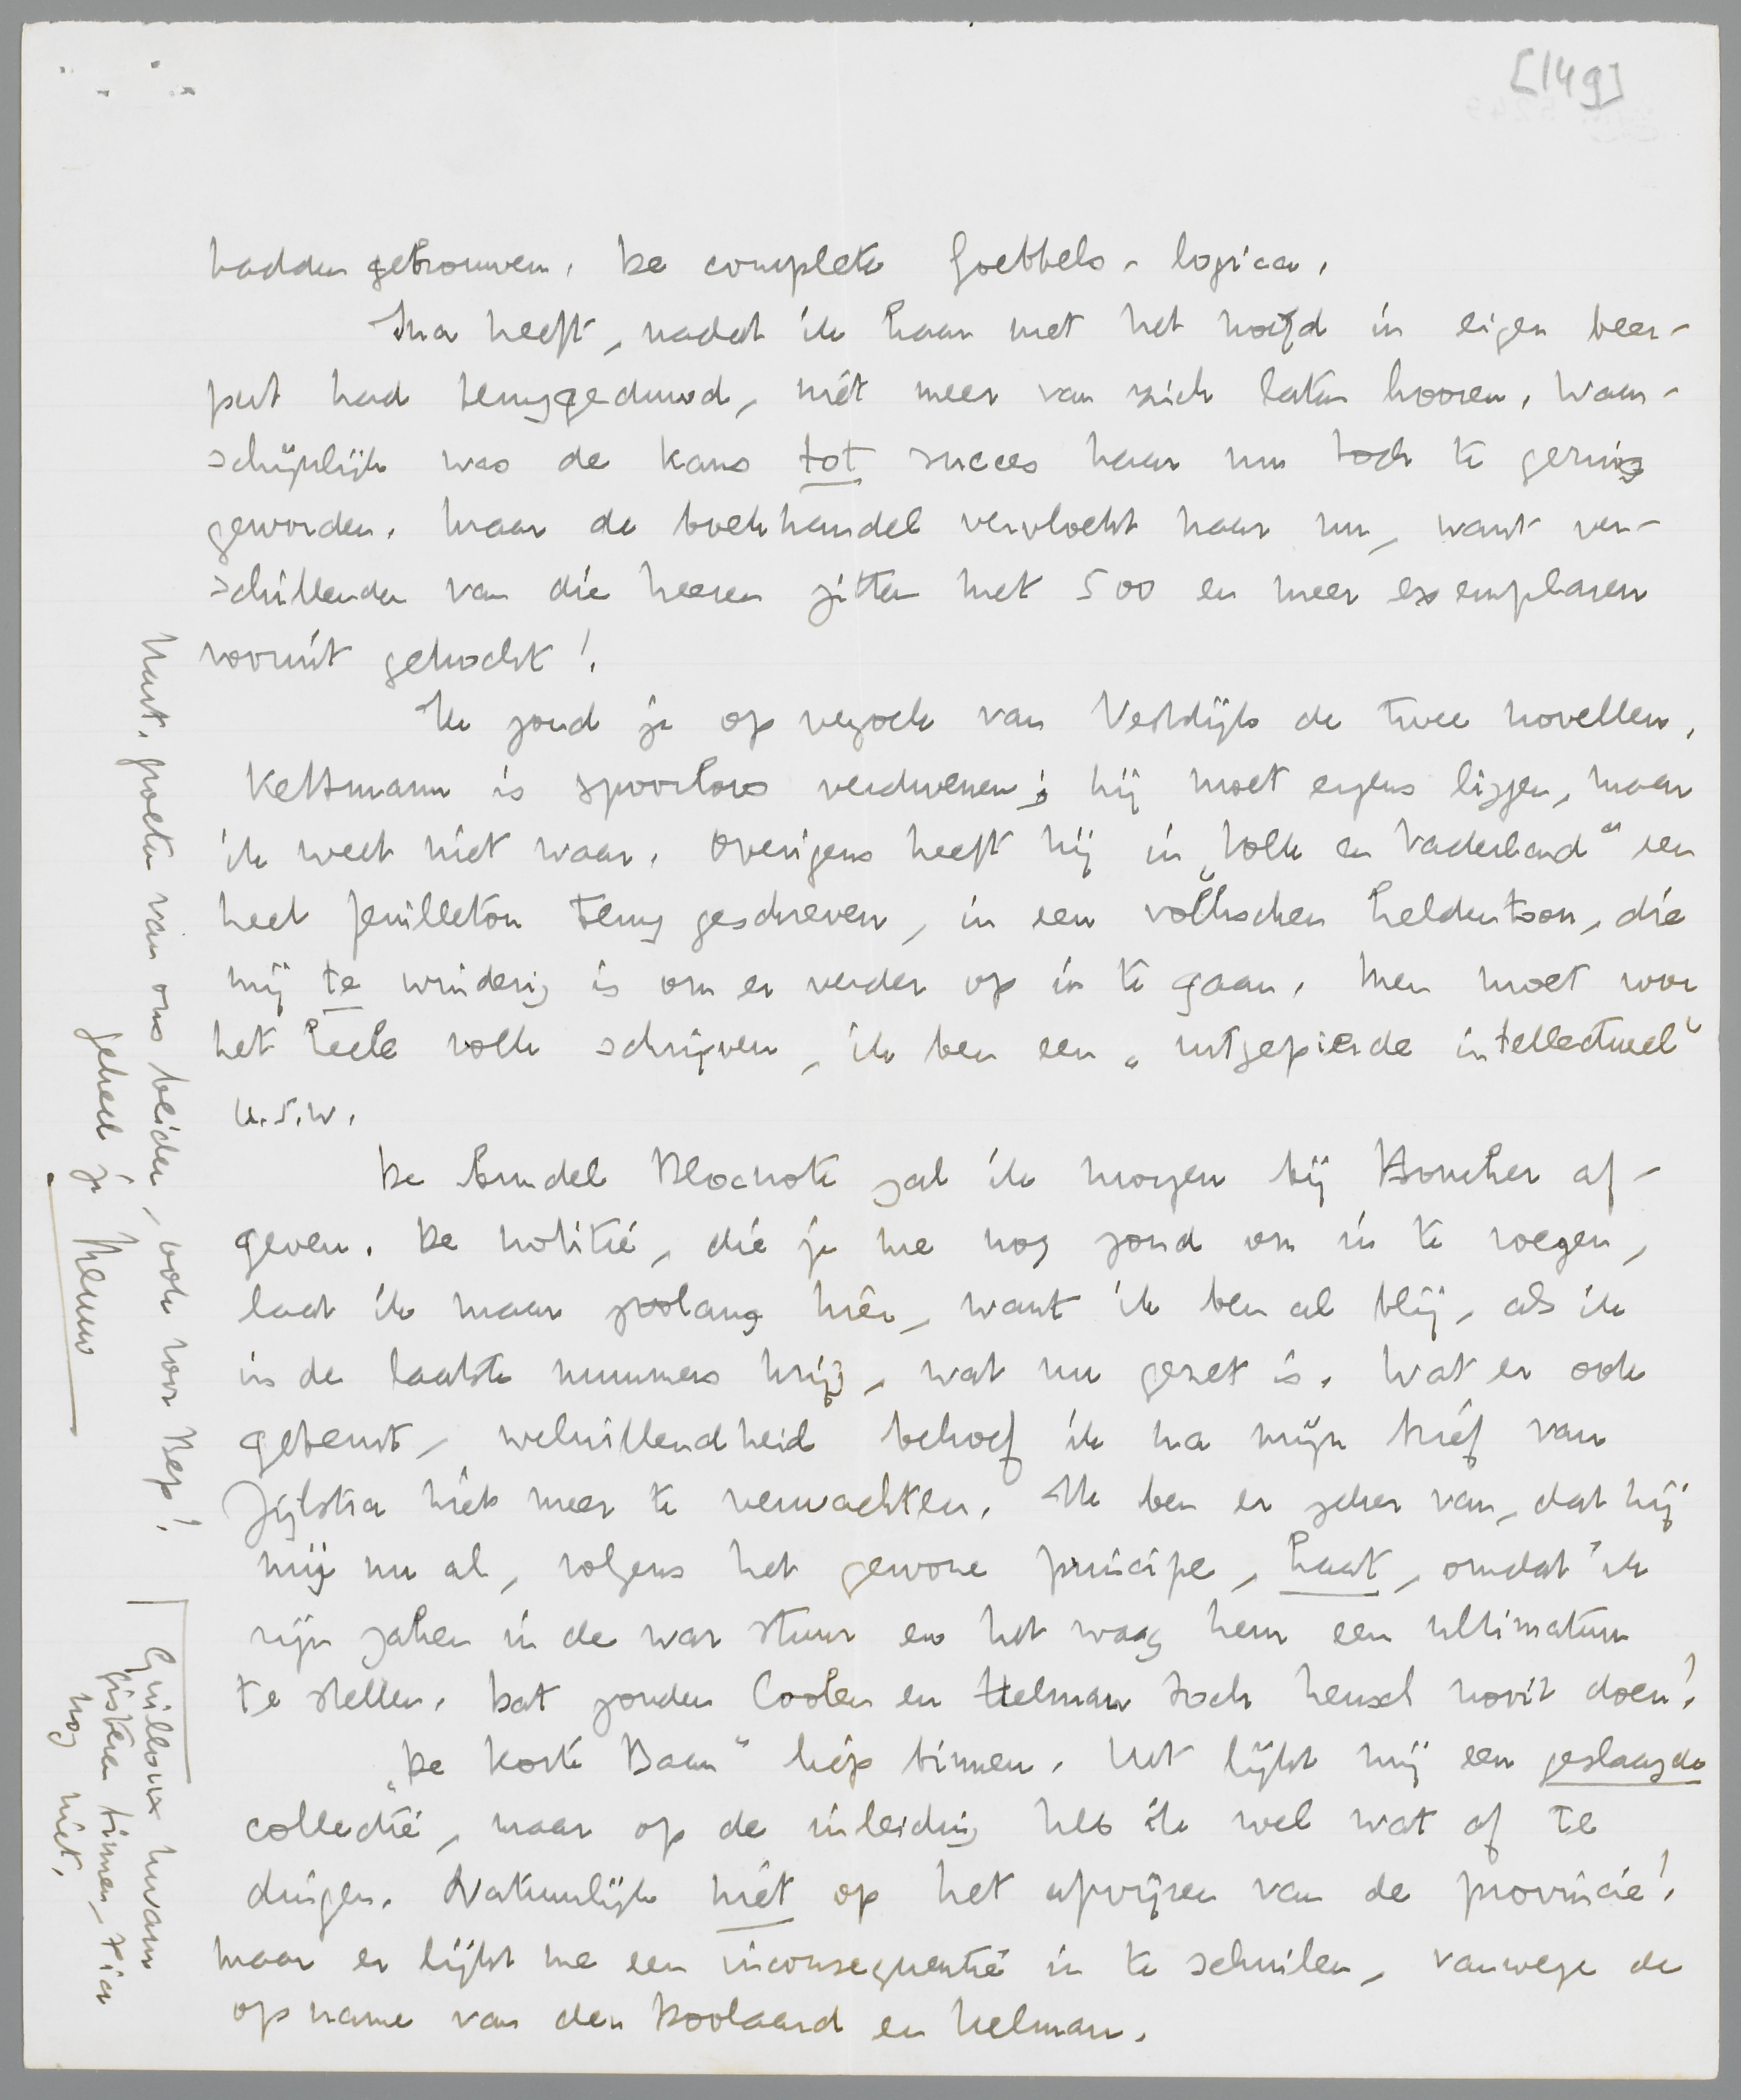 [149]
hadden getrouwen. De complete Goebbels-logica.
Ina heeft, nadat ik haar met het hoofd in eigen beer-
put had teruggeduwd, niét meer van zich laten hooren. Waar-
schijnlijk was de kans tot succes haar nu toch te gering
geworden. Maar de boekhandel vervloekt haar nu, want ver-
schillende van die heeren zitten met 500 en meer exemplaren
vooruit gekocht!
Ik zond je op verzoek van Vestdijk de twee novellen.
Kettmann is spoorloos verdwenen; hij moet ergens liggen, maar
ik weet niet waar. Overigens heeft hij in „Volk en Vaderland" een
heel feuilleton teruggeschreven, in een völkischen heldentoon, die
mij te winderig is om er verder op in te gaan. Men moet voor
het heele volk schrijven, ik ben een „uitgepierde intellectueel"
u.s.w.
De bundel Blocnote zal ik morgen bij Boucher af-
geven. De notitie, die je me nog zond om in te voegen,
laat ik maar zoolang hier, want ik ben al blij, als ik
in de laatste nummers krijg, wat nu gezet is. Wat er ook
gebeurt, welwillendheid behoef ik na mijn brief van
Zijlstra niets meer te verwachten. Ik ben er zeker van, dat hij
mij nu al, volgens het gewone principe, haat, omdat ik
zijn zaken in de war stuur en het waag hem een ultimatum
te stellen. Dat zouden Coolen en Helman toch heusch nooit doen!
„De Korte Baan" liep binnen. Het lijkt mij een geslaagde
collectie, maar op de inleiding heb ik wel wat af te
dingen. Natuurlijk niét op het afwijzen van de provincie!
Maar er lijkt me een inconsequentie in te schuilen, vanwege de
opname van den Doolaard en Helman.
Hart. groeten van ons beiden, ook voor Bep!
geheel je Menno
Guilloux kwam
gisteren binnen, xier
nog niet.